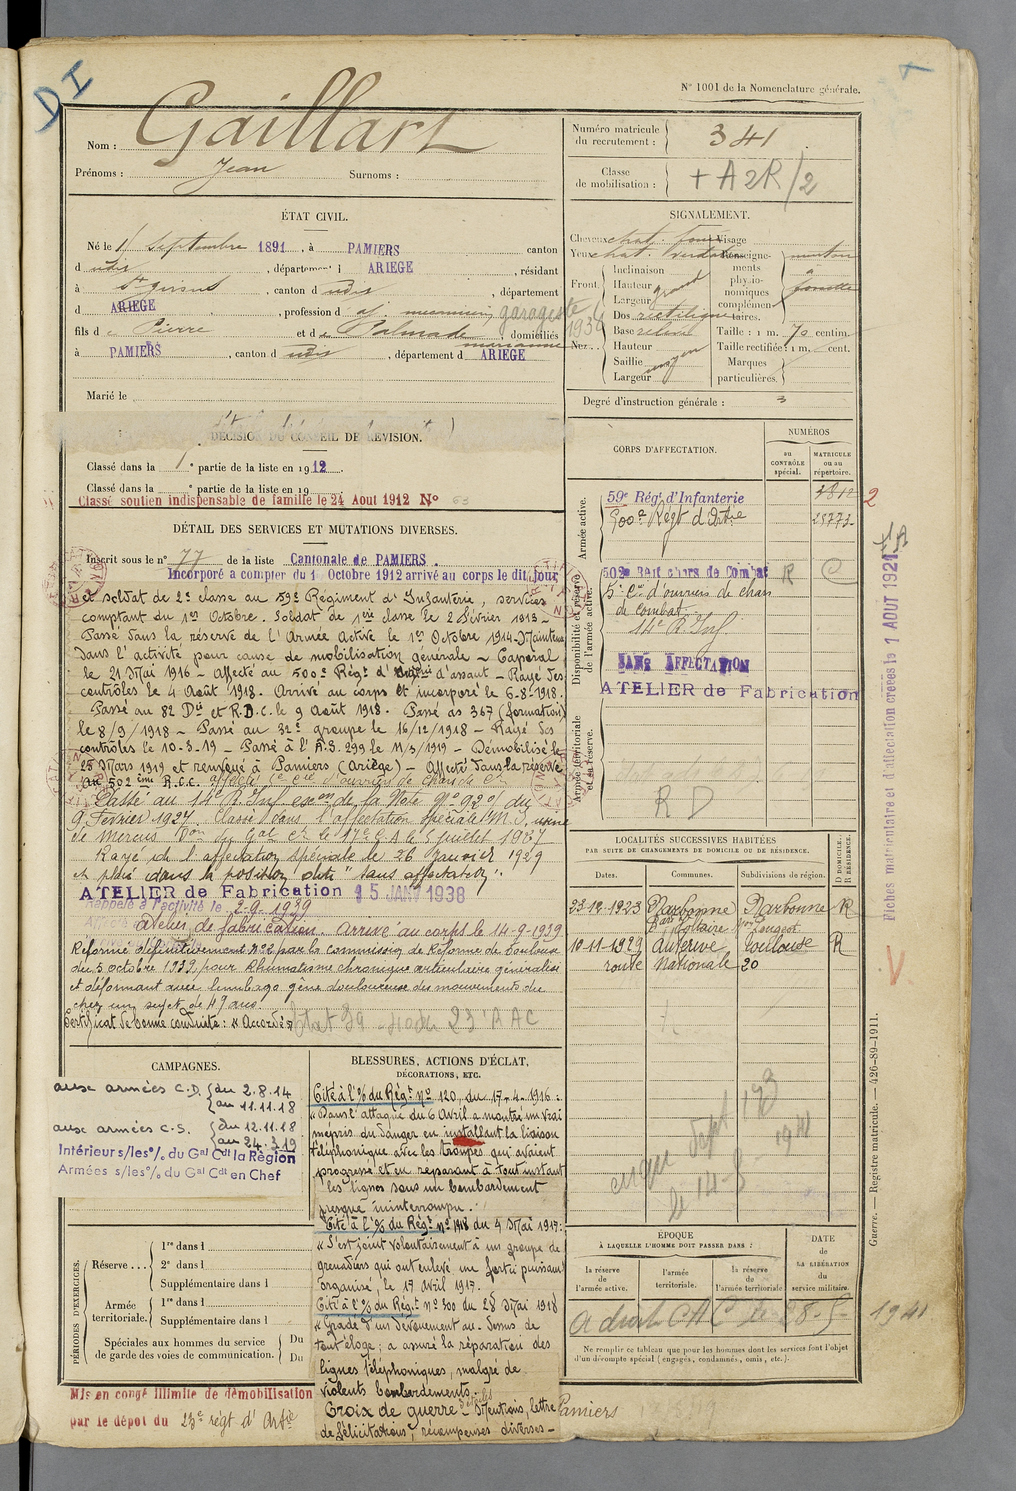 DI
N° 1001 de la Nomenclature générale.
Nom : Gaillart
Prénoms : Jean Surnoms :
Numéro matricule du recrutement : 341
Classe de mobilisation : + A 2R/2
ÉTAT CIVIL.
Né le 11 septembre 1891, à PAMIERS canton
d udis, département d ARIEGE, résidant
à St Girons, canton d udis, département
d ARIEGE, profession d aj. mécanicien, garagiste
fils de Pierre et de Palmade marianne domiciliés
à PAMIERS, canton d udis, département d ARIEGE
Marié le
SIGNALEMENT.
Cheveux chat. foncé Visage
Yeux chat. verdâtres Renseignements physionomiques complémentaires.
Front Inclinaison
Hauteur grand
Largeur
Nez Dos rectiligne
Base relevé
Hauteur
Saillie moyen
Largeur
menton à fossette
Taille : 1 m. 70 centim.
Taille rectifiée : 1 m. cent.
Marques particulières.
Degré d'instruction générale : 3
DÉCISION DU CONSEIL DE RÉVISION.
Classé dans la 1e partie de la liste en 1912.
Classé dans la e partie de la liste en 19
Classé soutien indispensable de famille le 24 Aout 1912 N° 63
DÉTAIL DES SERVICES ET MUTATIONS DIVERSES.
Inscrit sous le n° 77 de la liste Cantonale de PAMIERS.
Incorporé a compter du 1 Octobre 1912 arrivé au corps le dit jour
et soldat de 2e classe au 59e Régiment d'Infanterie, services
comptant du 1er Octobre. Soldat de 1ère classe le 2 Février 1913 -
Passé dans la réserve de l'Armée Active le 1er Octobre 1914 - Maintenu
dans l'activité pour cause de mobilisation générale - Caporal
le 21 Mai 1916 - Affecté au 500e Régt d'Artie d'assaut - Rayé des
contrôles le 4 Août 1918. Arrivé au corps et incorporé le 6-8-1918.
Passé au 82 Du et R.D.C. le 9 août 1918. Passé as 367 (formation)
le 8/9/1918 - Passé au 32e groupe le 16/12/1918 - Rayé des
contrôles le 10-3-19 - Passé à l'A.S. 299 le 11/3/1919 - Démobilisé le
25 Mars 1919 et renvoyé à Pamiers (Ariège) - Affecté dans la réserve
au 502ème R.C.C. affecté 5e Cie d'ouvriers de chars de Ct
Classé au 14e R. Inf. exon de la Note N° 920/ du
9 Février 1927. Classé dans l'affectation spéciale M.I. usine
de Mercus Don du Gal Ct le 17e C.A le 5 juillet 1937
Rayé de l'affectation spéciale le 26 Janvier 1929
et placé dans la position dite "sans affectation".
ATELIER de Fabrication 15 JANV 1938
Rappelé à l'activité le 2-9-1939
Atelier de fabrication. Arrivé au corps le 14-9-1939
Réformé définitivement N°2 par la commission de Réforme de Toulouse
du 5 octobre 1939 pour Rhumatisme chronique articulaire généralisé
et déformant avec lumbago gêne douloureuse des mouvements du
chez un sujet de 49 ans.
Certificat de bonne conduite : "Accordé"
CORPS D'AFFECTATION.
NUMÉROS
au CONTRÔLE spécial.
MATRICULE ou au répertoire.
Armée active.
59e Régt d'Infanterie 3812 2
500e Régt d'Artie 25773
Disponibilité et réserve de l'armée active.
502e Régt chars de Combat R
5e Cie d'ouvriers de chars
de combat
14e R. Inf
SANS AFFECTATION
ATELIER de Fabrication
Armée territoriale et sa réserve.
R D
Fiches matriculaire et d'affectation créées le 1 AOUT 1921
LOCALITÉS SUCCESSIVES HABITÉES
PAR SUITE DE CHANGEMENTS DE DOMICILE OU DE RÉSIDENCE.
Dates. Communes. Subdivisions de région. D DOMICILE. R RÉSIDENCE.
23-12-1923 Narbonne Narbonne R
Bard Voltaire Peugeot
10-11-1929 Auterive Toulouse R
route Nationale 20
CAMPAGNES.
aux armées C.D. du 2.8.14
au 11.11.18
aux armées C.S. du 12.11.18
au 24.3.19
Intérieur s/les % du Gal Cdt la Région
Armées s/les % du Gal Cdt en Chef
BLESSURES, ACTIONS D'ÉCLAT,
DÉCORATIONS, ETC.
Cité à l'% du Régt N° 120, du 17-4-1916 :
"Dans l'attaque du 6 Avril a montré un vrai
mépris du danger en installant la liaison
téléphonique avec les troupes qui avaient
progressé et en reparant à tout instant
les lignes sous un bombardement
presque ininterrompu.
Cité à l'% du Régt N° 198 du 4 Mai 1917:
"S'est joint volontairement à un groupe de
grenadiers qui ont enlevé un fortin puissamt
organisé, le 17 Avril 1917.
Cité à l'% du Régt N° 300 du 28 Mai 1918
"Gradé d'un dévouement au-dessus de
tout éloge ; a assuré la réparation des
lignes téléphoniques, malgré de
violents bombardements.
Croix de guerre - Mentions, lettre
de félicitations, récompenses diverses -
PÉRIODES D'EXERCICES.
Réserve... 1re dans l
2e dans l
Supplémentaire dans l
Armée territoriale. 1re dans l
Supplémentaire dans l
Spéciales aux hommes du service de garde des voies de communication. Du
Du
ÉPOQUE
À LAQUELLE L'HOMME DOIT PASSER DANS :
la réserve de l'armée active.
l'armée territoriale.
la réserve de l'armée territoriale
DATE de LA LIBÉRATION du service militaire.
Ne remplir ce tableau que pour les hommes dont les services font l'objet
d'un décompte spécial (engagés, condamnés, omis, etc.).
Mis en congé illimité de démobilisation
par le dépôt du 23e régt d'Artie Pamiers
Guerre. — Registre matricule. — 426-89-1911.